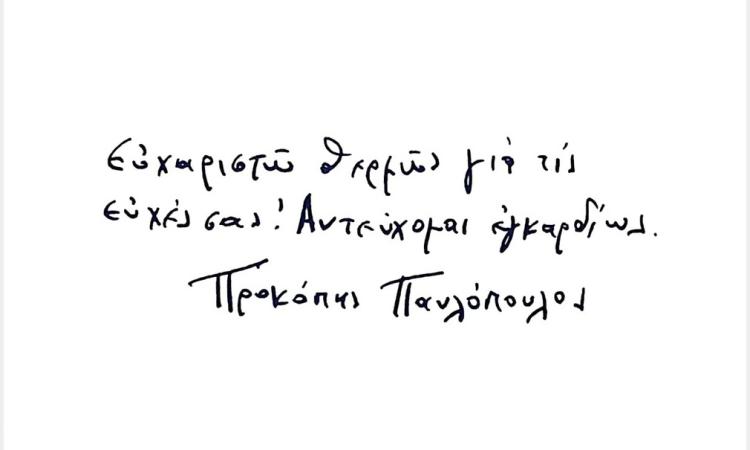 Εὐχαριστῶ θερμῶς γιὰ τίς
εὐχές σας! Ἀντεύχομαι ἐγκαρδίως.
Προκόπης Παυλόπουλος